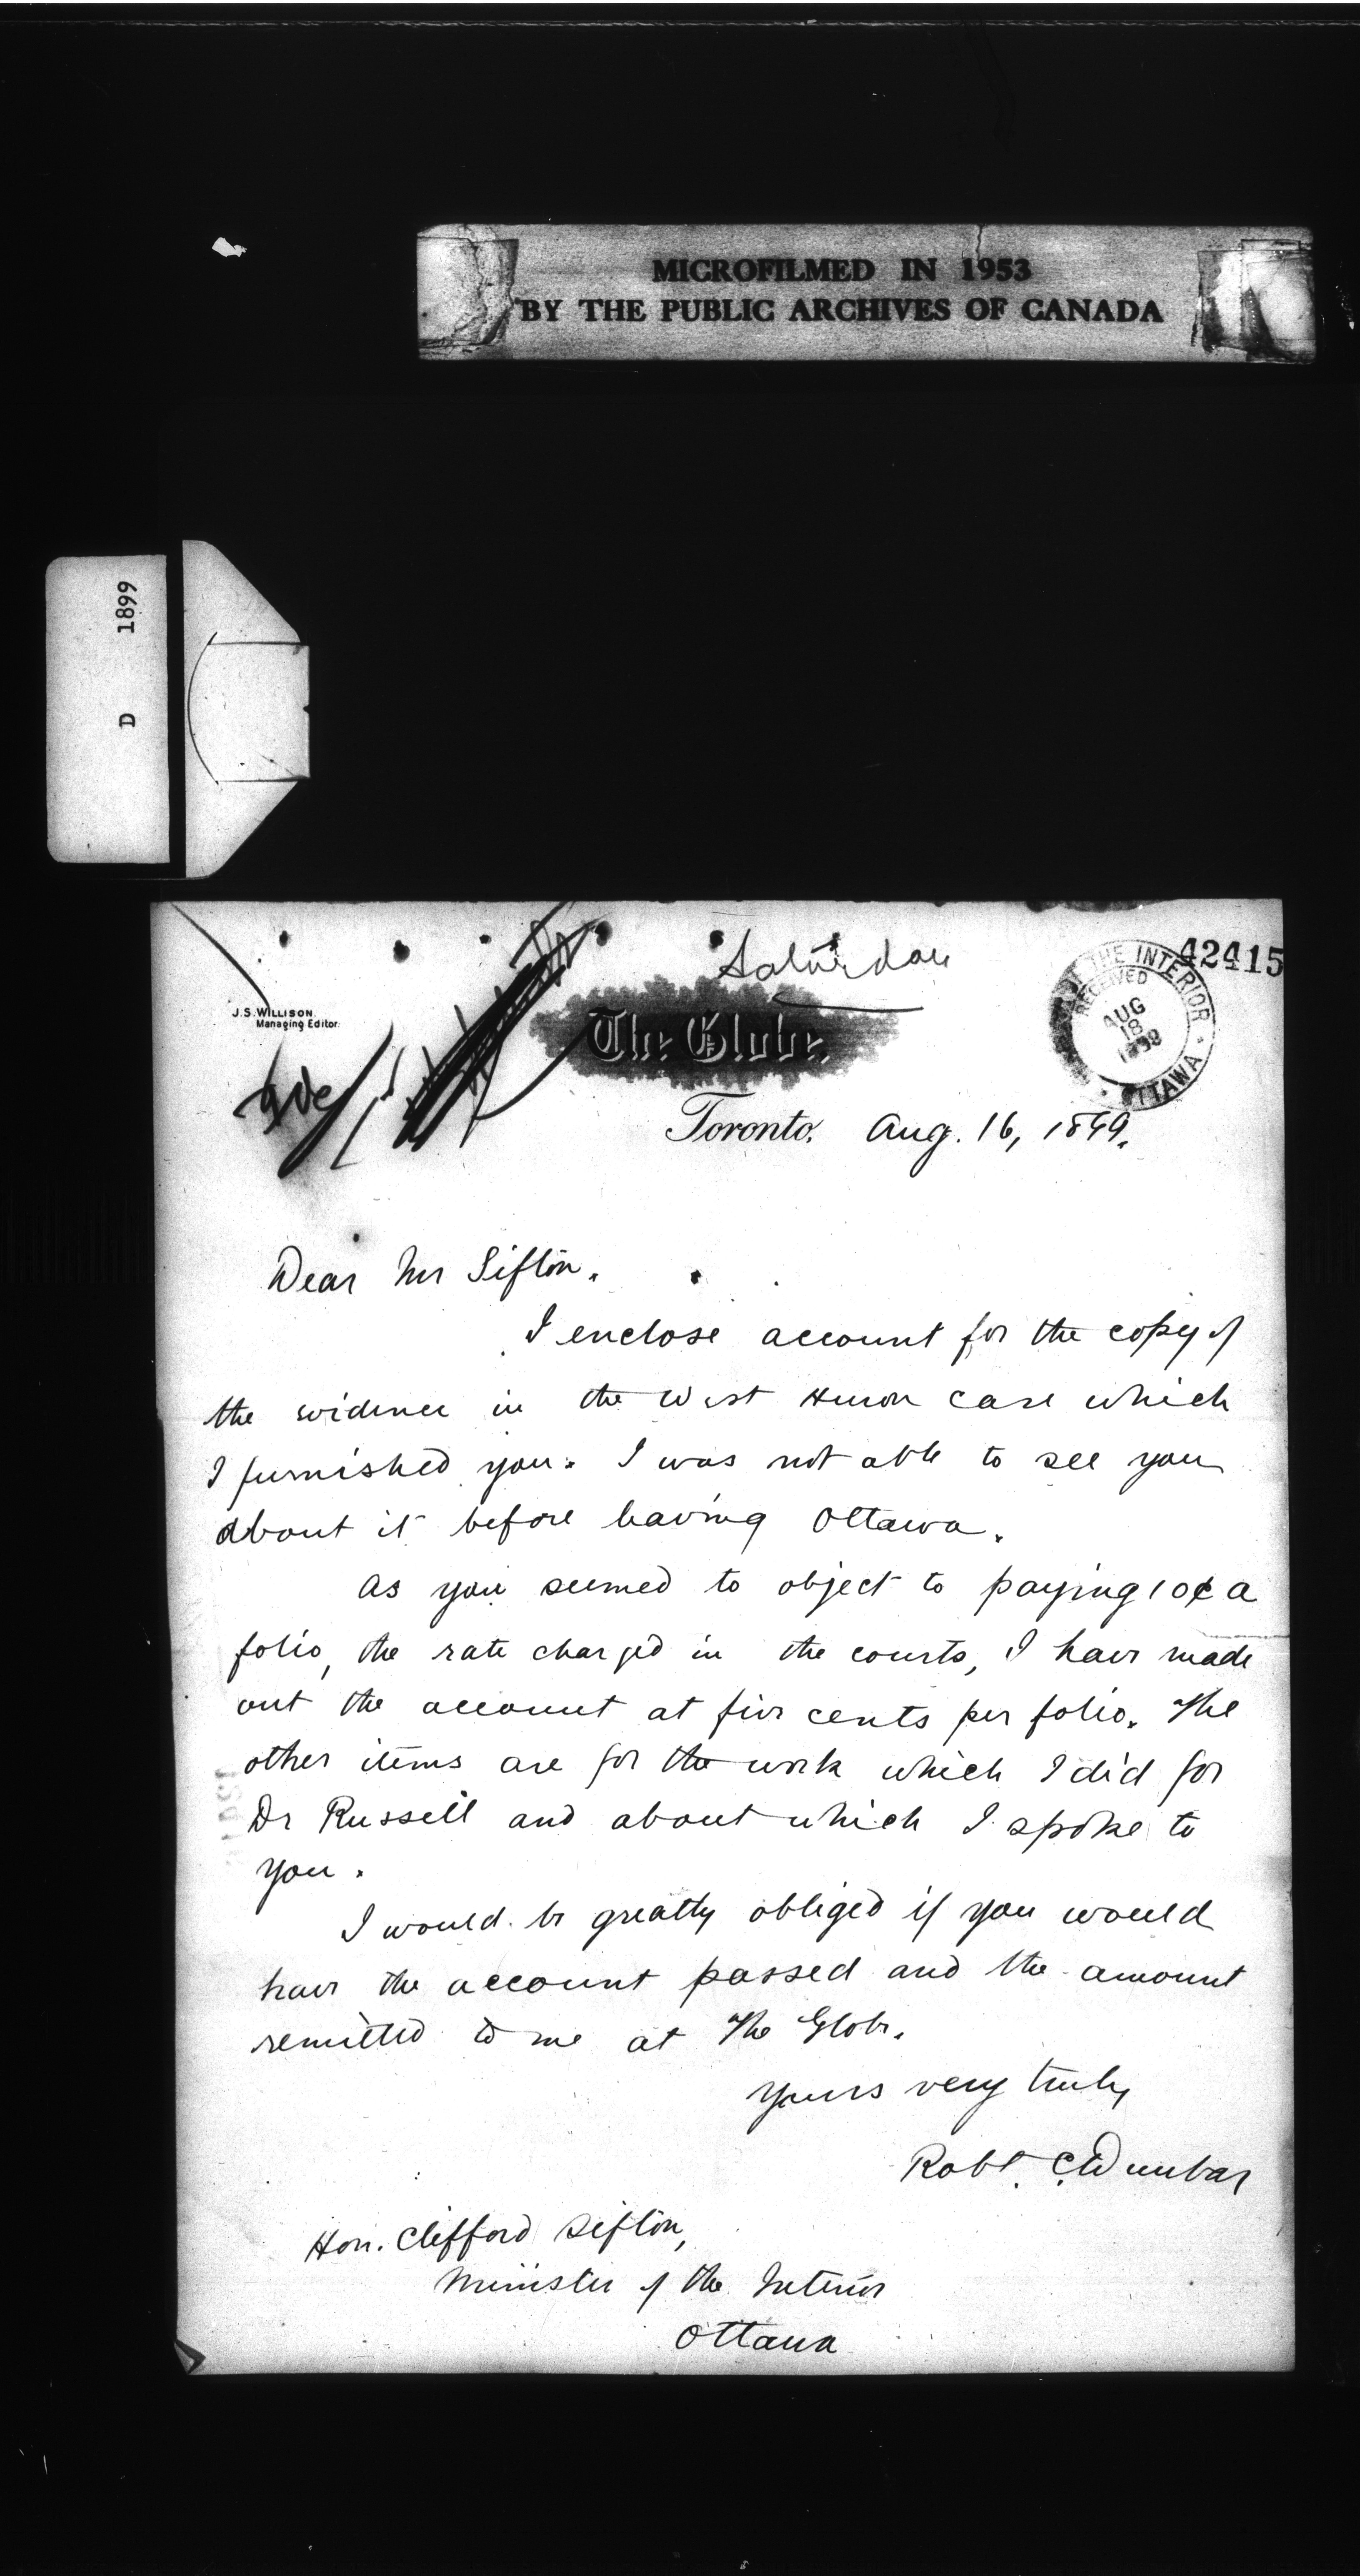 MICROFILMED IN 1953
BY THE PUBLIC ARCHIVES OF CANADA
D 1899
Saturday
42415
J.S. WILLISON.
Managing Editor.
The Globe.
THE INTERIOR
RECEIVED
AUG
18
OTTAWA
Toronto. Aug. 16, 1899.
Dear Mr Sifton.
I enclose account for the copy of
the evidence in the West Huron case which
I furnished you. I was not able to see you
about it before leaving Ottawa.
As you seemed to object to paying 10¢ a
folio, the rate charged in the courts, I have made
out the account at five cents per folio. The
other items are for the work which I did for
Dr Russell and about which I spoke to
you.
I would be greatly obliged if you would
have the account passed and the amount
remitted to me at The Globe.
Yours very truly
Robt. C. Dunbar
Hon. Clifford Sifton,
Minister of the Interior
Ottawa